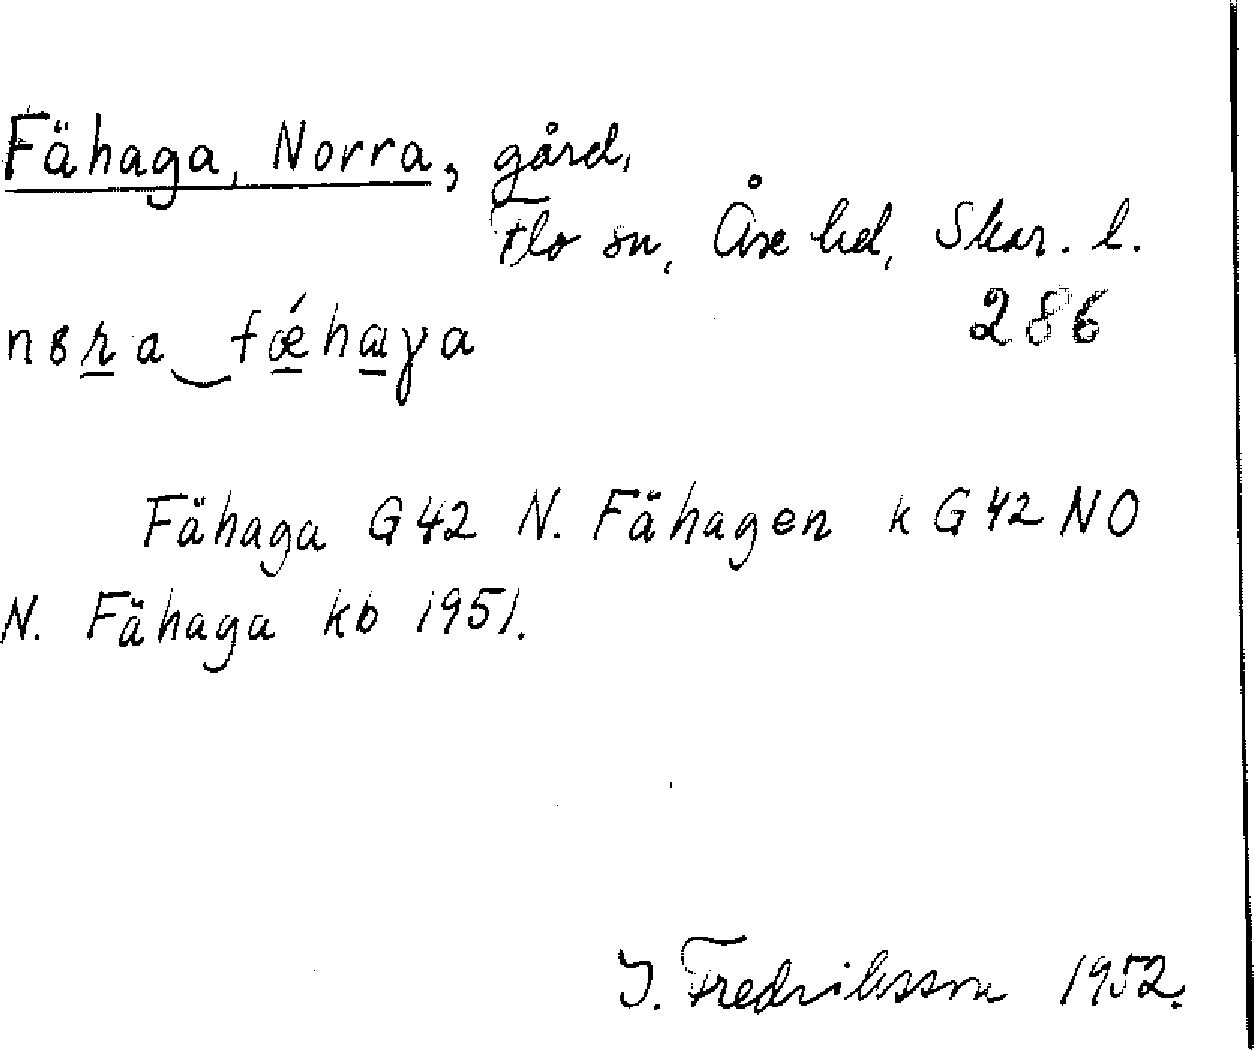 Fähaga, Norra, gård,
Flo sn, Åse hd, Skar. l.
286
nɞra‿fǽhaɣa
Fähaga G42 N. Fähagen k G42 NO
N. Fähaga kb 1951.
I. Fredriksson 1952.